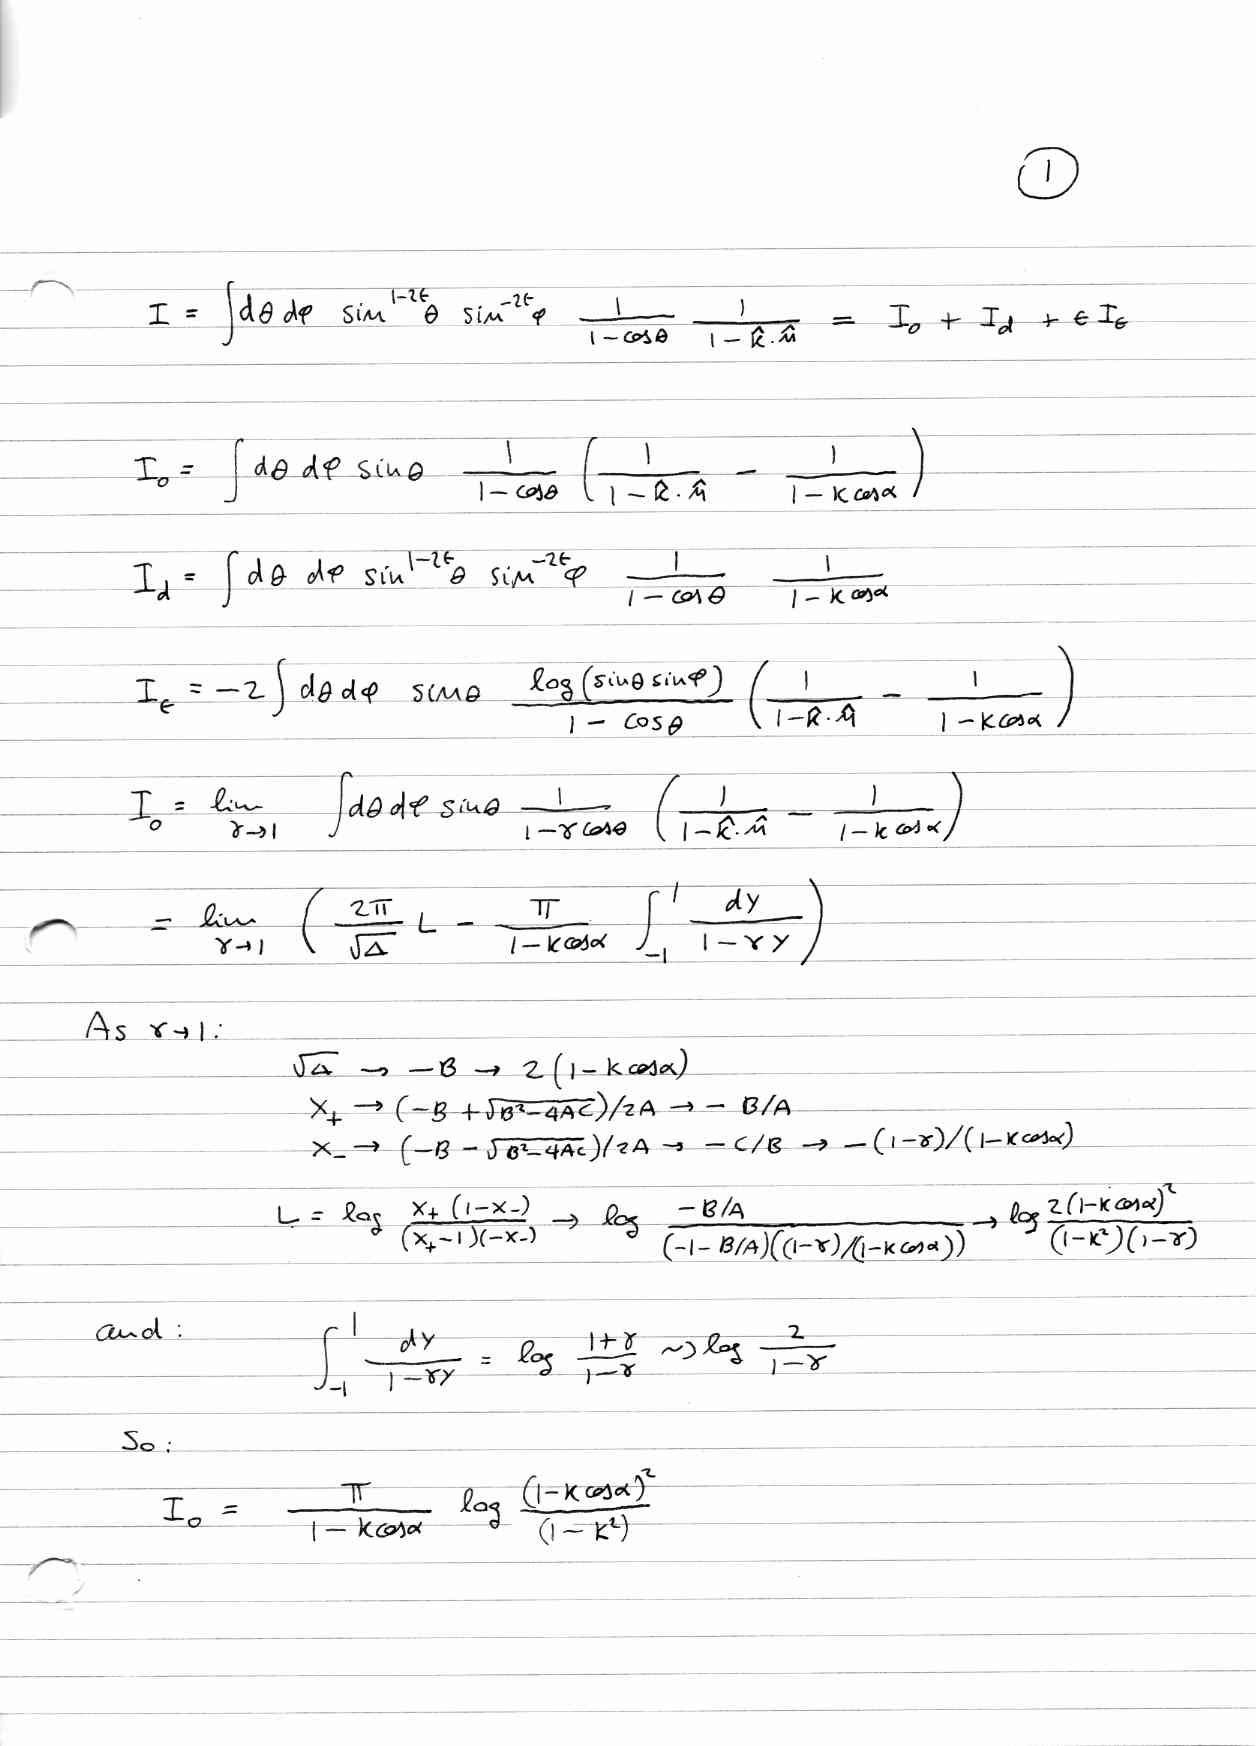 1
I = ∫dθ dφ sin^{1-2ε}θ sin^{-2ε}φ \frac{1}{1-cosθ} \frac{1}{1-k̂·n̂} = I_0 + I_d + ε I_ε
I_0 = ∫dθ dφ sinθ \frac{1}{1-cosθ} ( \frac{1}{1-k̂·n̂} - \frac{1}{1-k cosα} )
I_d = ∫dθ dφ sin^{1-2ε}θ sin^{-2ε}φ \frac{1}{1-cosθ} \frac{1}{1-k cosα}
I_ε = -2∫dθ dφ sinθ \frac{log(sinθ sinφ)}{1-cosθ} ( \frac{1}{1-k̂·n̂} - \frac{1}{1-k cosα} )
I_0 = lim_{γ→1} ∫dθ dφ sinθ \frac{1}{1-γcosθ} ( \frac{1}{1-k̂·n̂} - \frac{1}{1-k cosα} )
= lim_{γ→1} ( \frac{2π}{√Δ} L - \frac{π}{1-k cosα} ∫_{-1}^{1} \frac{dy}{1-γy} )
As γ→1:
√Δ → -B → 2(1-k cosα)
x_+ → (-B + √{B²-4AC})/2A → - B/A
x_- → (-B - √{B²-4AC})/2A → -C/B → -(1-γ)/(1-k cosα)
L = log \frac{x_+(1-x_-)}{(x_+-1)(-x_-)} → log \frac{-B/A}{(-1-B/A)((1-γ)/(1-k cosα))} → log \frac{2(1-k cosα)²}{(1-k²)(1-γ)}
and:
∫_{-1}^{1} \frac{dy}{1-γy} = log \frac{1+γ}{1-γ} ~> log \frac{2}{1-γ}
So:
I_0 = \frac{π}{1-k cosα} log \frac{(1-k cosα)²}{(1-k²)}